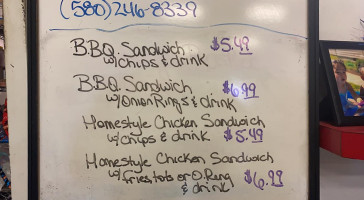 (580) 246-8339
B.B.Q. Sandwich $5.49
w/chips & drink
B.B.Q. Sandwich $6.99
w/Onion Rings & drink
Homestyle Chicken Sandwich
w/chips & drink $5.49
Homestyle Chicken Sandwich
w/fries, tots or O.Ring
& drink $6.99